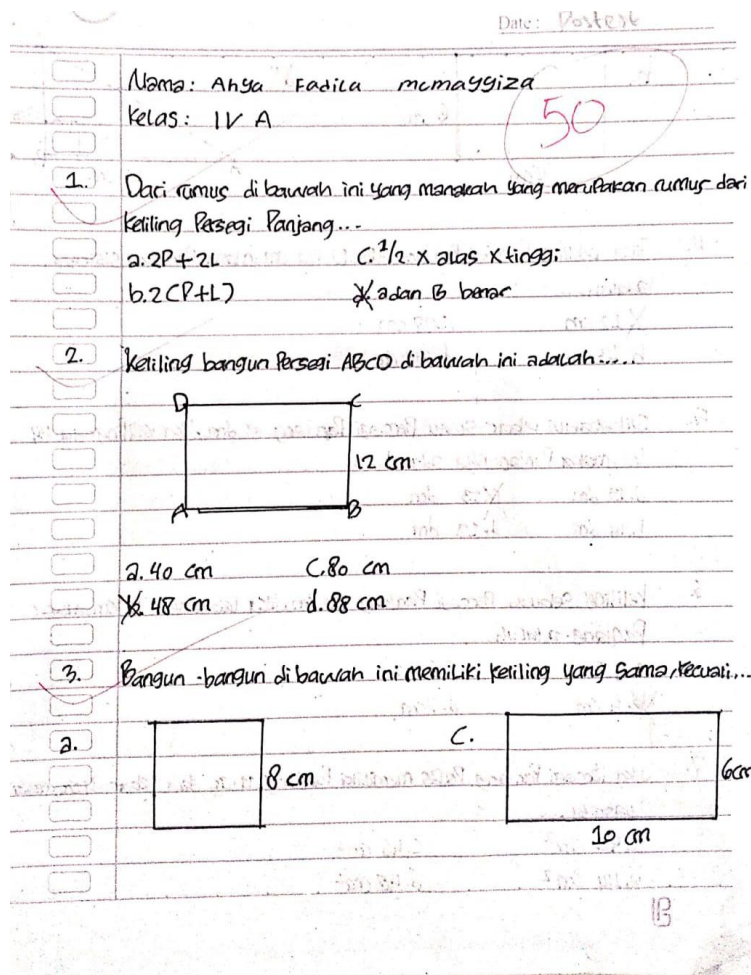 Date: Postest
Nama: Ahya Fadila memayyiza
Kelas: IV A
50
1. Dari rumus di bawah ini yang manakah yang merupakan rumus dari
keliling Persegi Panjang...
a. 2P+2L C. 1/2 x alas x tinggi
b. 2(P+L) adan B benar
2. Keliling bangun Persegi ABCD di bawah ini adalah.....
D C
12 cm
A B
a. 40 cm C. 80 cm
b. 48 cm d. 88 cm
3. Bangun-bangun di bawah ini memiliki keliling yang sama, kecuali...
a. C.
8 cm 6cm
10 cm